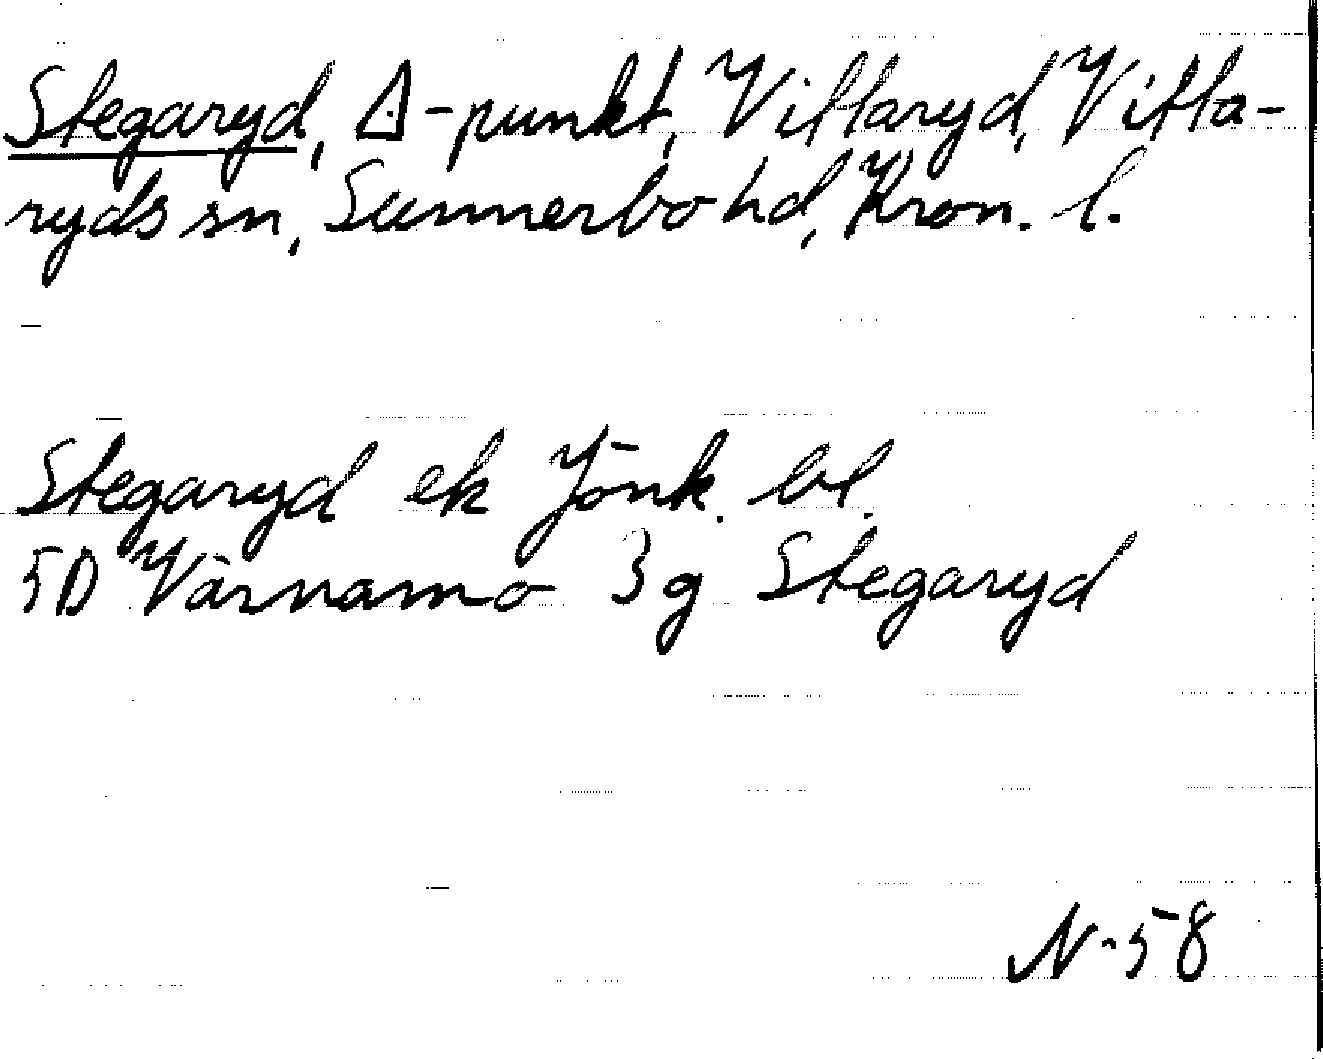 Stegaryd, Δ-punkt, Vittaryd, Vitta-
ryds sn, Sunnerbo hd, Kron. l.
Stegaryd ek Jönk. bl.
5D Värnamo 3g Stegaryd
N-58